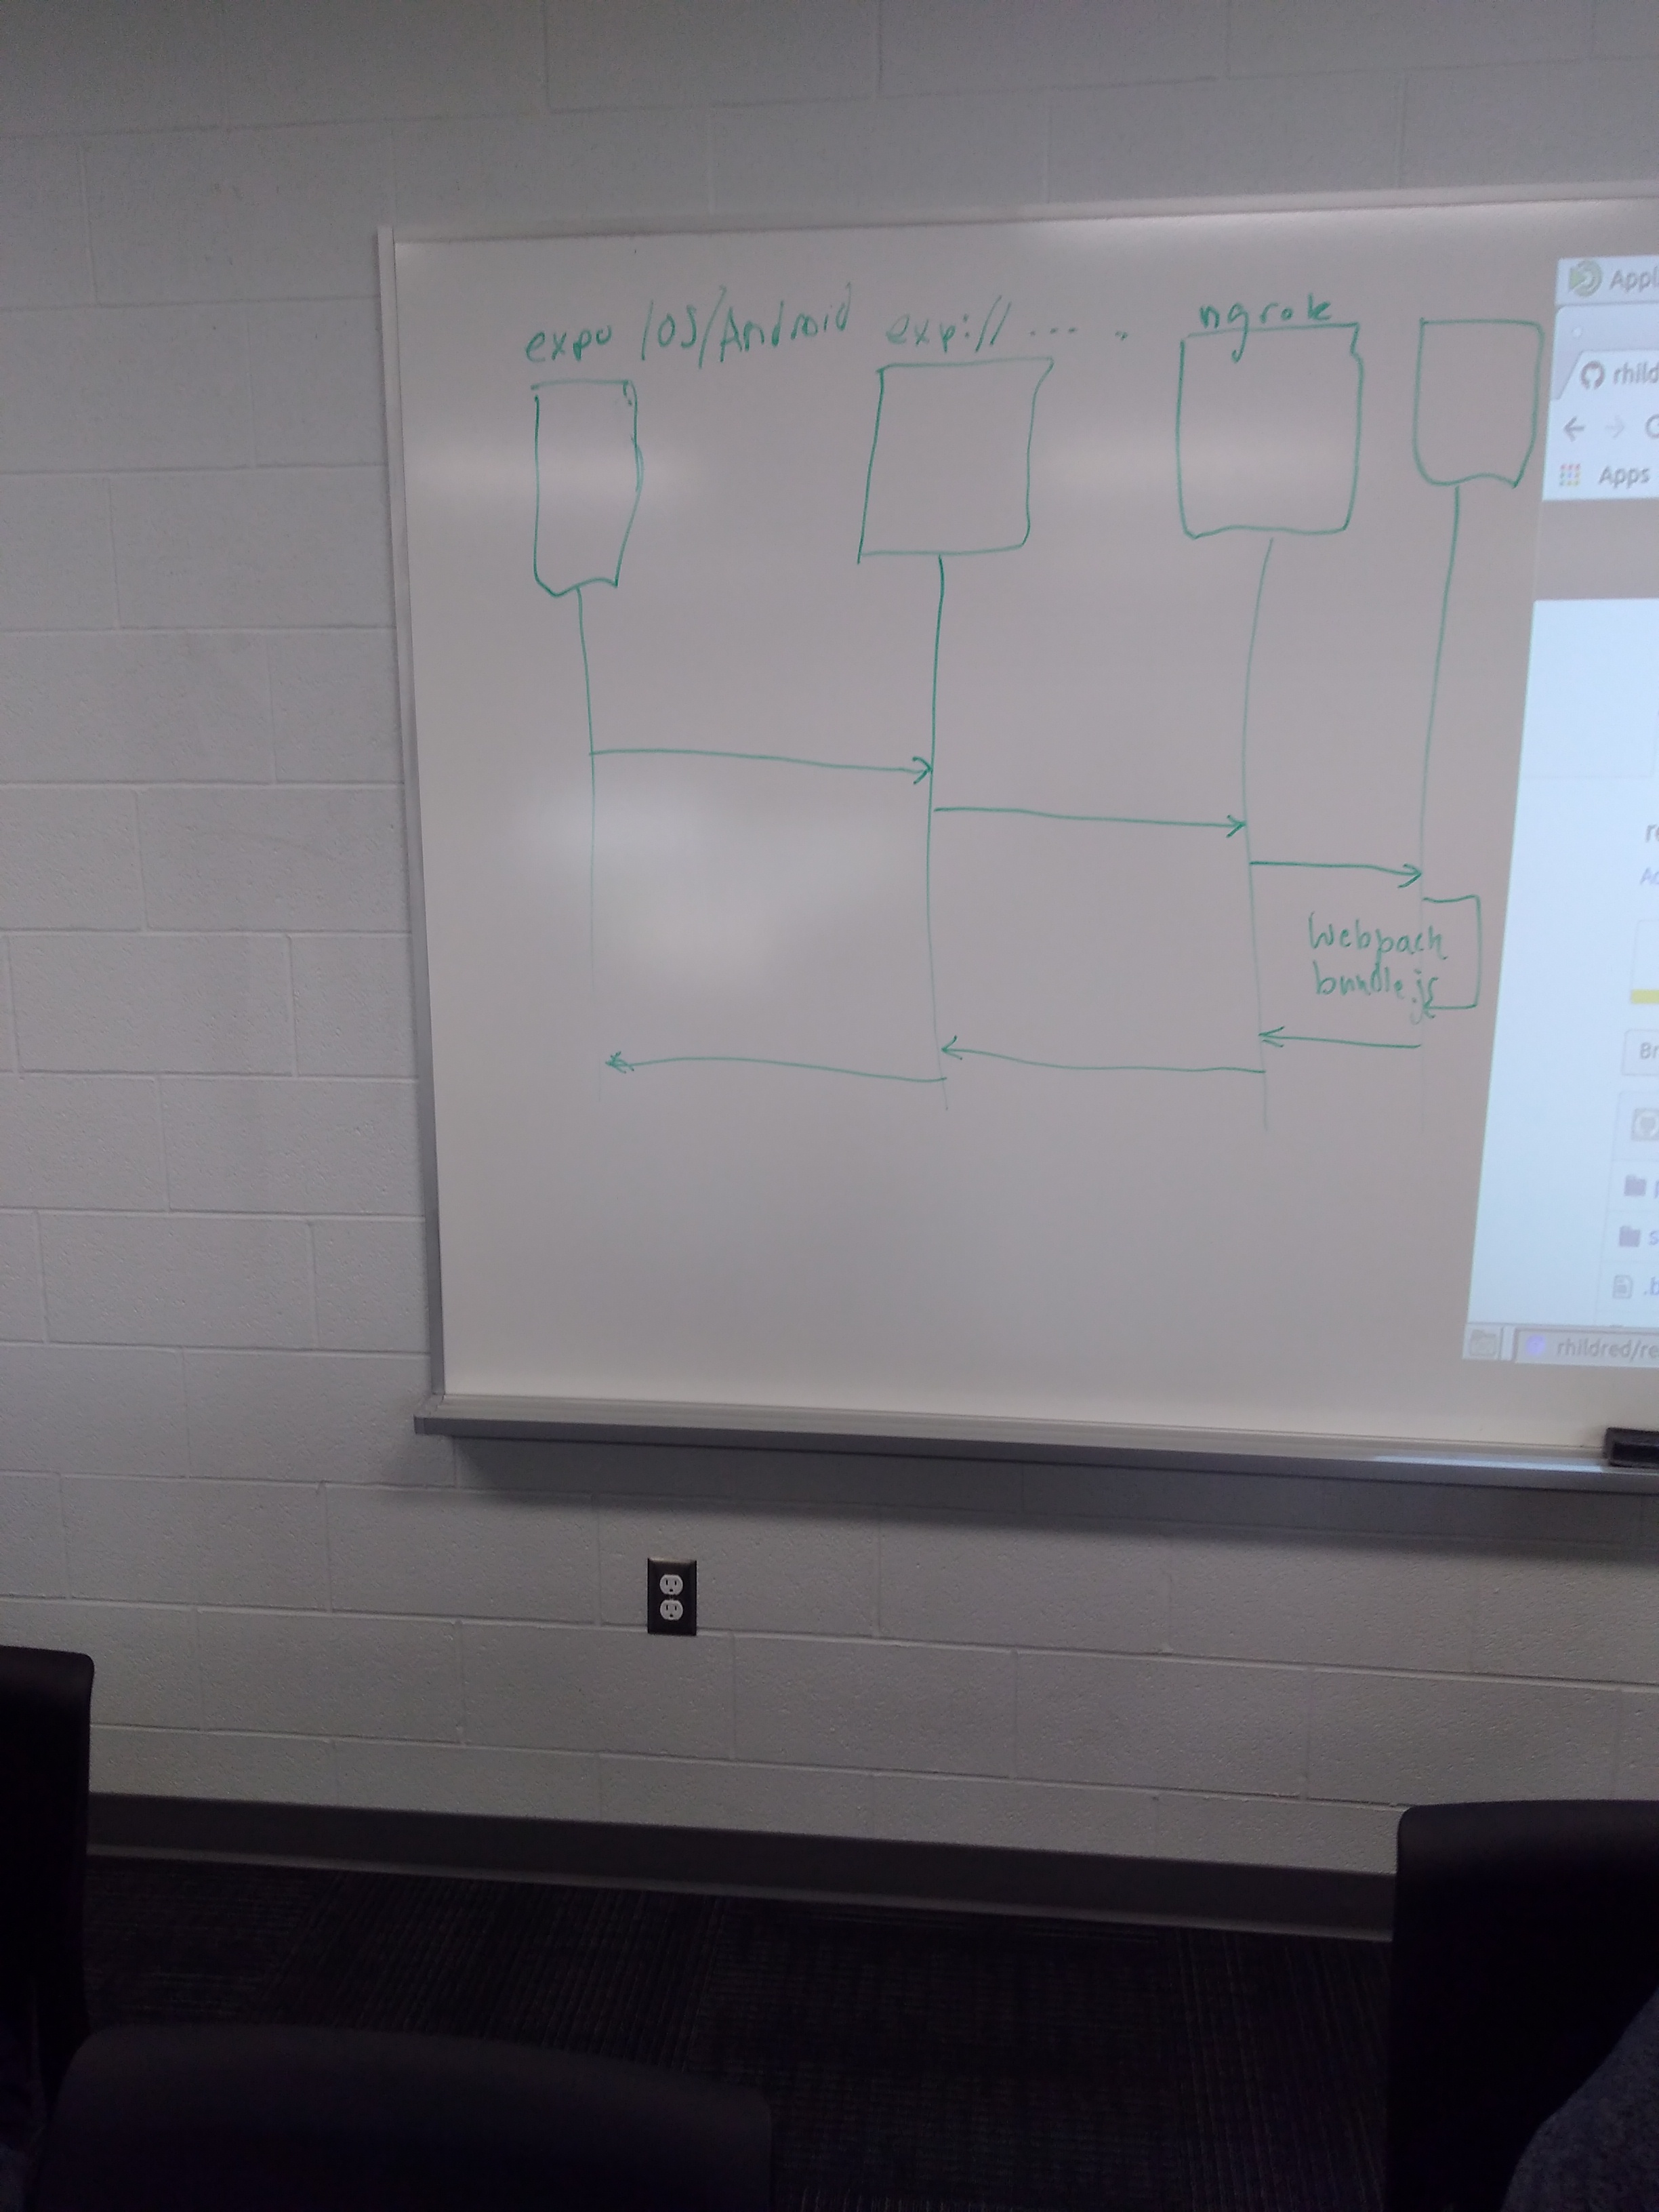 expo iOS/Android exp:// ... . ngrok
Webpack
bundle.js
Appl
rhild
Apps
Br
rhildred/re